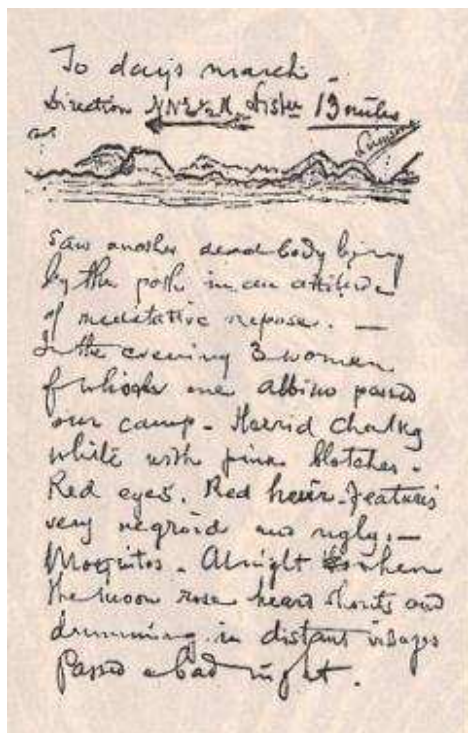 To day's march.
Direction NNE½N. Distce 13 miles
Saw another dead body lying
by the path in an attitude
of meditative repose. —
In the evening 3 women
of whom one albino passed
our camp. Horrid chalky
white with pink blotches.
Red eyes. Red hair. Features
very negroid and ugly. —
Mosquitos. At night when
the moon rose heard shouts and
drumming in distant villages
Passed a bad night.